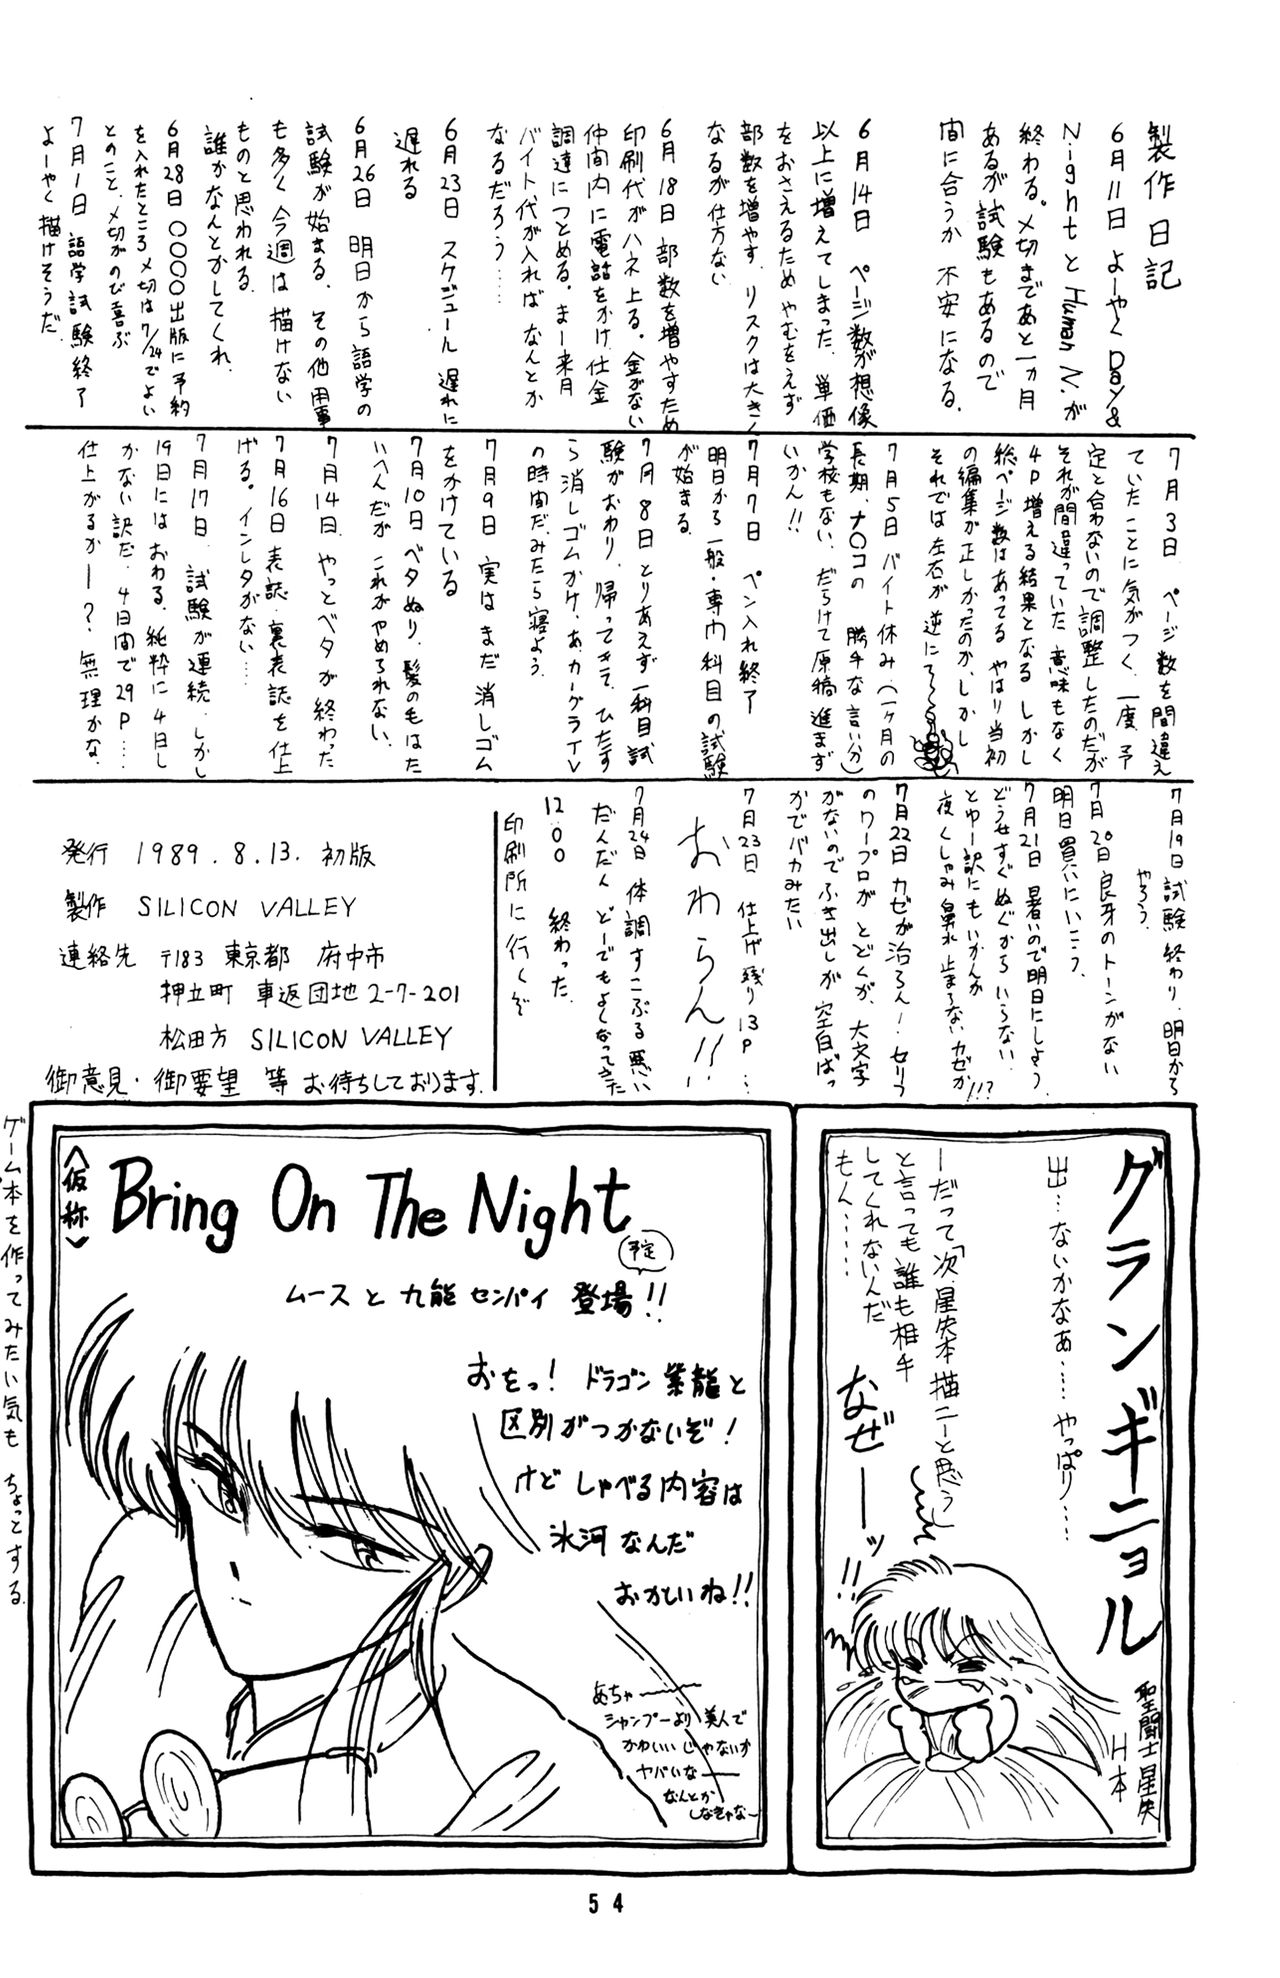 製作日記
6月11日 よーやくDay&
NightとHuman N.が
終わる。〆切まであと一ヵ月
あるが試験もあるので
間に合うか 不安になる.
6月14日 ページ数が想像
以上に増えてしまった. 単価
をおさえるため やむをえず
部数を増やす. リスクは大きく
なるが仕方ない
6月18日 部数を増やすため
印刷代がハネ上る。金がない
仲間内に電話をかけ.仕金
調達につとめる。まー来月
バイト代が入れば なんとか
なるだろう……
6月23日 スケジュール 遅れに
遅れる
6月26日 明日から語学の
試験が始まる. その他用事
も多く 今週は描けない
ものと思われる.
誰かなんとかしてくれ.
6月28日 〇〇〇〇出版に予約
を入れたところ〆切は7/24でよい
とのこと. 〆切がのび喜ぶ
7月1日 語学試験終了
よーやく描けそうだ.
7月3日 ページ数を間違え
ていたことに気がつく. 一度.予
定と合わないので調整したのだが
それが間違っていた 意味もなく
4P増える結果となる しかし
総ページ数はあってる やはり当初
の編集が正しかったのか.しかし
それでは左右が逆にてぇ〜
7月5日 バイト休み. (一ヶ月の
長期. ナ〇コの 勝手な言い分)
学校もない. だらけて原稿進まず
いかん!!
7月7日 ペン入れ終了
明日から一般・専門科目の試験
が始まる.
7月8日 とりあえず一科目試
験がおわり. 帰ってきて. ひたす
ら消しゴムかけ.あ.カーグラTV
の時間だ.みたら寝よう.
7月9日 実はまだ消しゴム
をかけている
7月10日 ベタぬり. 髪の毛はた
いへんだが これがやめられない.
7月14日. やっとベタが終わった
7月16日 表誌.裏表誌を仕上
げる. インレタがない….
7月17日. 試験が連続. しかし
19日にはおわる. 純粋に4日し
かない訳だ. 4日間で29P……
仕上がるかー?. 無理かな.
7月19日 試験終わり. 明日から
やろう.
7月20日 良牙のトーンがない
明日買いにいこう.
7月21日 暑いので明日にしよう
どうせすぐぬぐからいらない.
とゆー訳にもいかんか!!?
夜くしゃみ鼻水止まらないカゼか
7月22日 カゼが治らん! セリフ
のワープロが とどくが. 大文字
がないのでふき出しが 空白ばっ
かでバカみたい
7月23日 仕上げ残り13P…
おわらん!!
7月24日 体調すこぶる悪い
だんだんどーでもよくなってきた
12:00 終わった.
印刷所に行くぞ
発行 1989.8.13. 初版
製作 SILICON VALLEY
連絡先 〒183 東京都 府中市
押立町 車返団地2-7-201
松田方 SILICON VALLEY
御意見・御要望 等 お待ちしております.
グランギニョル
聖闘士星矢
H本
出…ないかなあ…… やっぱり……
―だって「次.星矢本描こーと思う
と言っても誰も相手
してくれないんだ
もん……
なぜーーッ!!
〈仮称〉
Bring On The Night
予定
ムースと九能センパイ 登場!!
おをっ! ドラゴン紫龍と
区別がつかないぞ!
けど しゃべる内容は
氷河なんだ
おかしいね!!
あちゃ――――
シャンプーより美人で
かわいいじゃないか
ヤバいな――
なんとか
しなきゃな―
ゲーム本を作ってみたい気も ちょっとする.
54